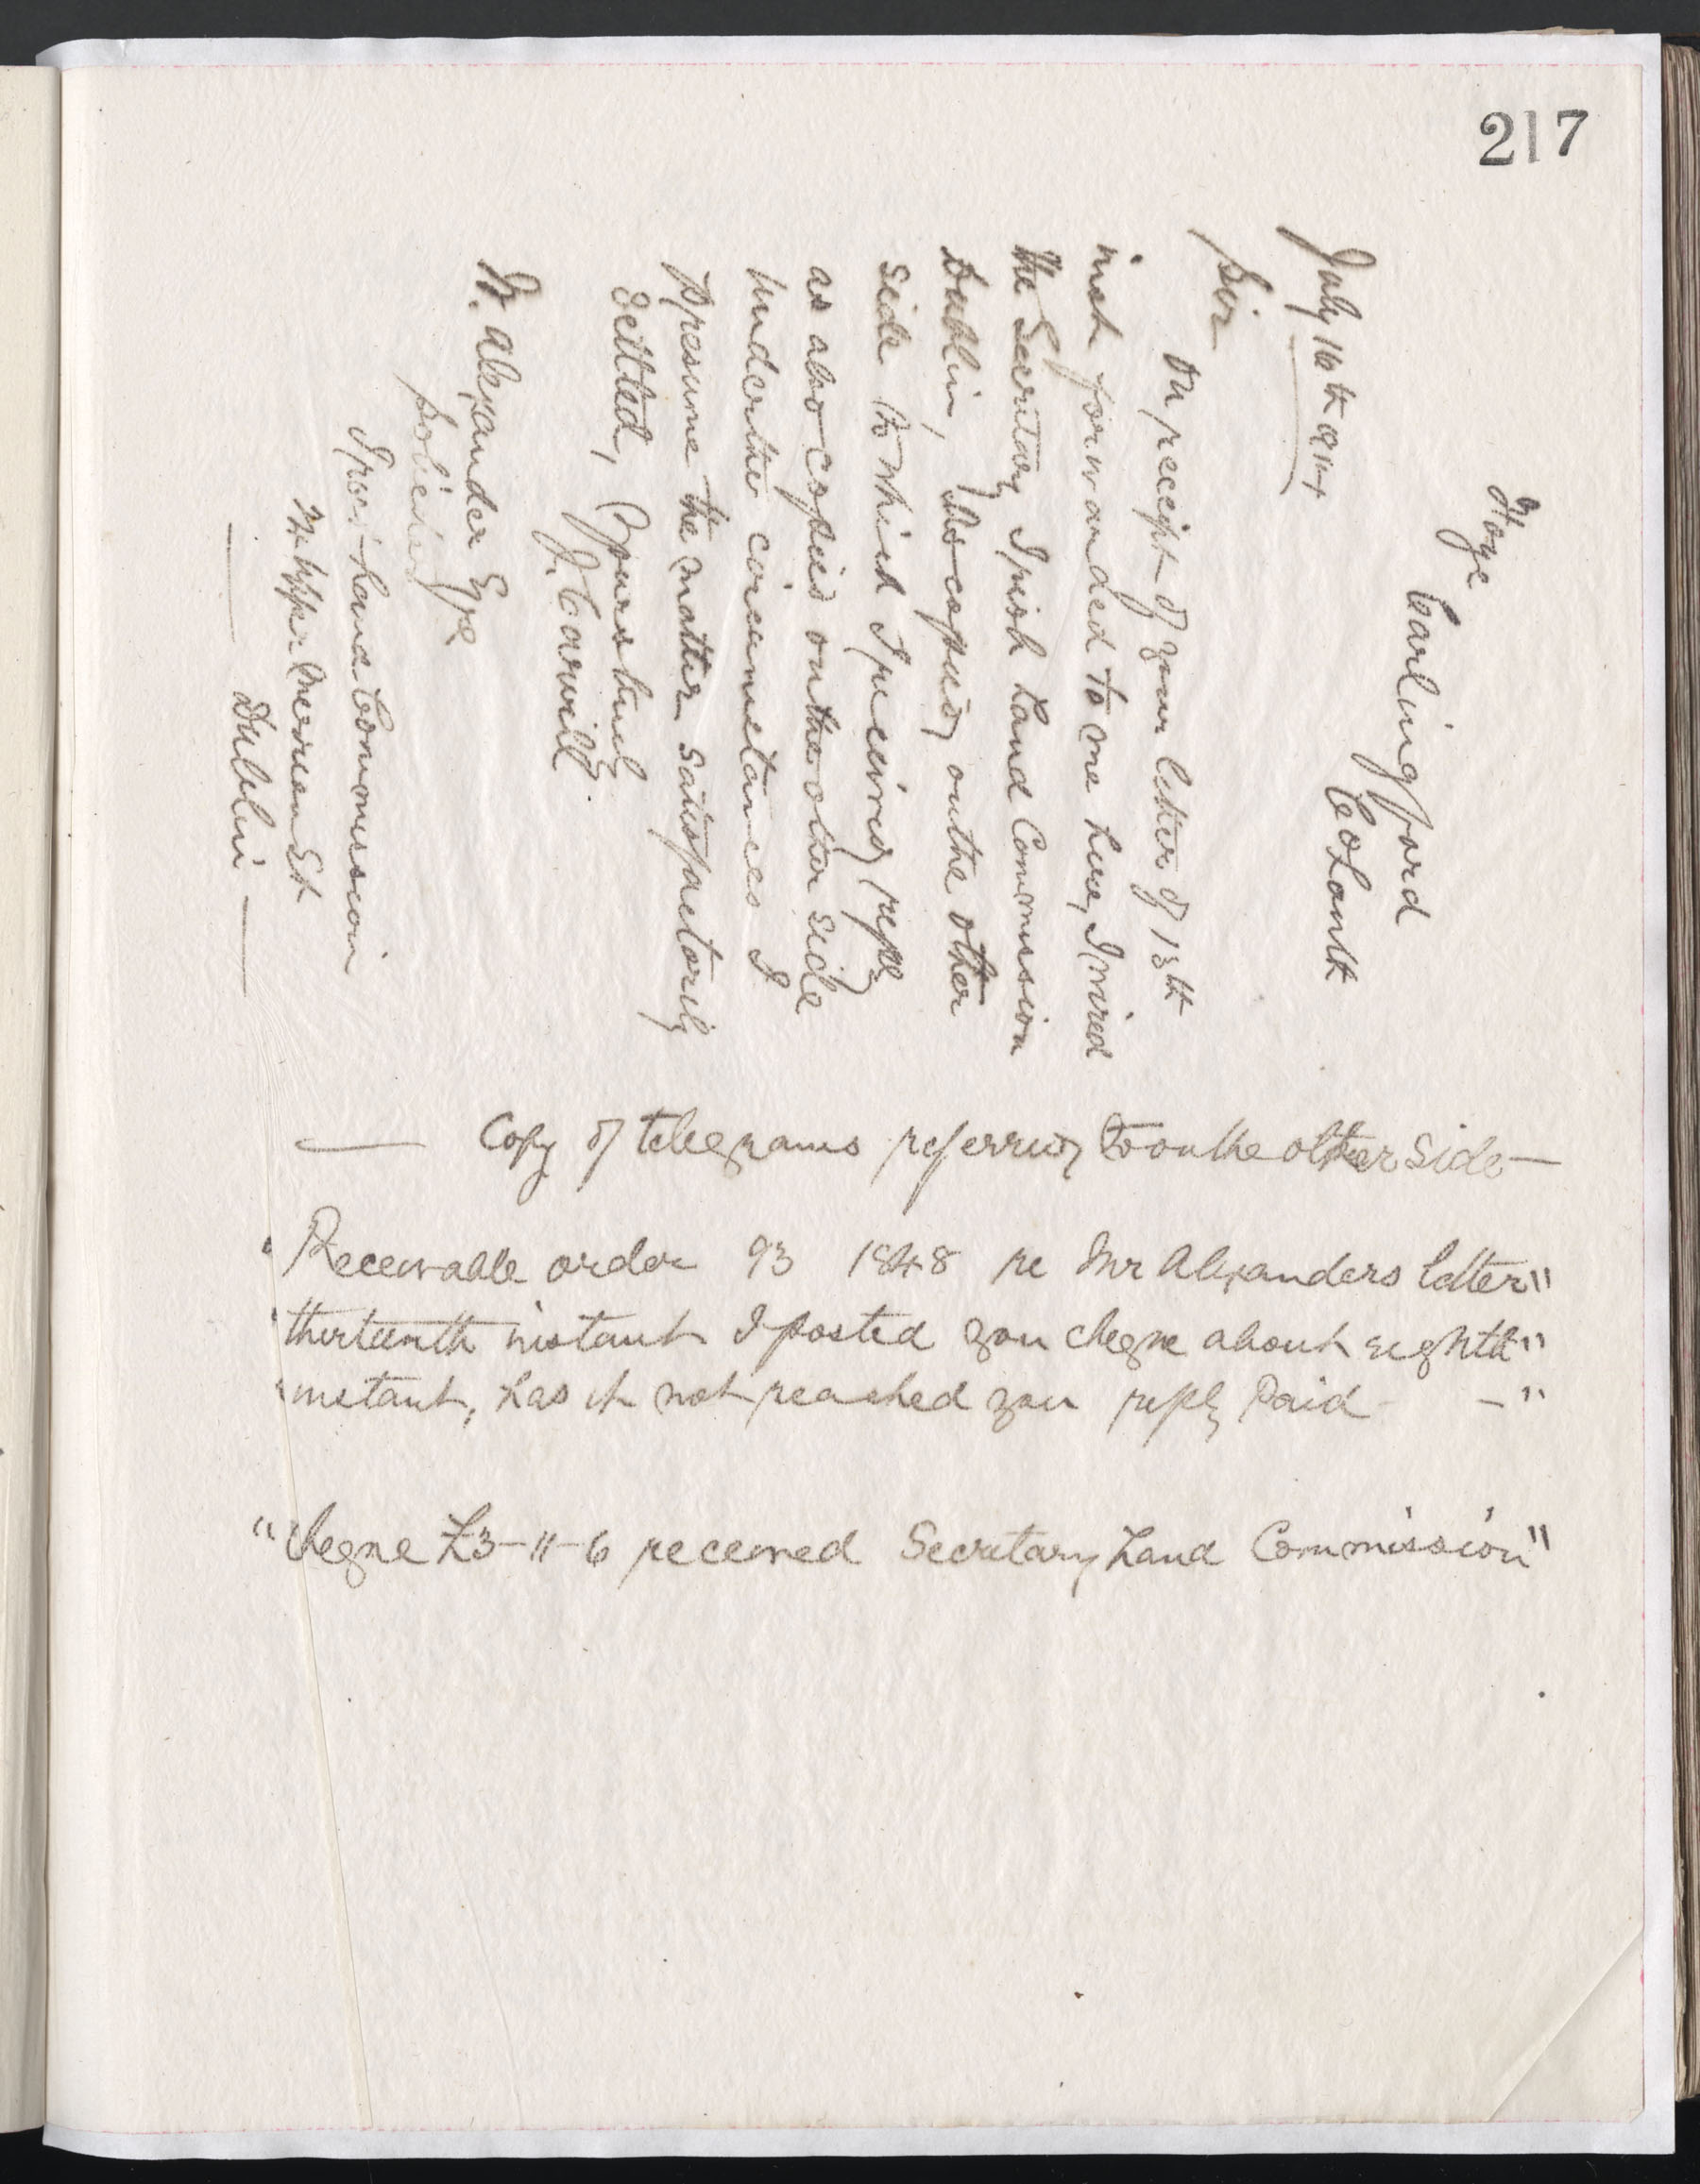 217
Hoye
Carlingford
Co Louth
July 16th 94
Sir
On receipt of your letter of 13th
inst forwarded to me here, I wired
the Secretary Irish Land Commission
Dublin, As copied on the other
side to which I received reply
as also copied on the other side
Under the circumstances I
presume the matter satisfactorily
Settled, Yours truly
J. Carvill
W. Alexander Esqe
Solicitor
Irish Land Commission
Upper Merrion St
Dublin
Copy of telegrams referred to on the other side
"Receivable order 93 1848 re Mr Alexanders letter"
"thirteenth instant I posted you cheque about eighth"
"instant, has it not reached you reply Paid - "
"Cheque £3-11-6 received Secretary Land Commission"